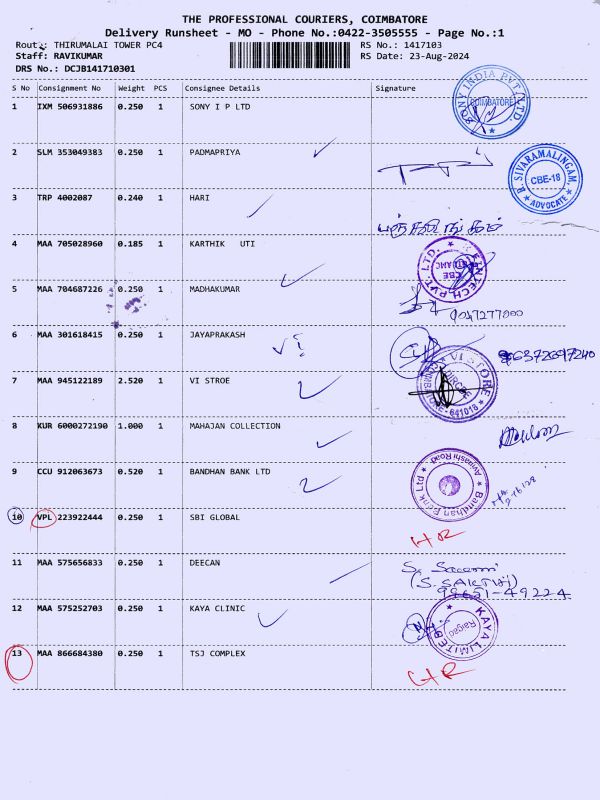 THE PROFESSIONAL COURIERS, COIMBATORE
Delivery Runsheet - MO - Phone No.:0422-3505555 - Page No.:1
Route: THIRUMALAI TOWER PC4 RS No.: 1417103
Staff: RAVIKUMAR RS Date: 23-Aug-2024
DRS No.: DCJB141710301
S No Consignment No Weight PCS Consignee Details Signature
1 IXM 506931886 0.250 1 SONY I P LTD
SONY INDIA PVT. LTD. COIMBATORE
2 SLM 353049383 0.250 1 PADMAPRIYA
R. SIVARAMALINGAM, CBE-18 ADVOCATE
3 TRP 4002087 0.240 1 HARI
4 MAA 705028960 0.185 1 KARTHIK UTI
CBE PVT. LTD.
5 MAA 704687226 0.250 1 MADHAKUMAR
6 MAA 301618415 0.250 1 JAYAPRAKASH
7 MAA 945122189 2.520 1 VI STROE
VI STORE COIMBATORE-641018
8 KUR 6000272190 1.000 1 MAHAJAN COLLECTION
9 CCU 912063673 0.520 1 BANDHAN BANK LTD
Bandhan Bank Ltd Avinashi Road
10 VPL 223922444 0.250 1 SBI GLOBAL
11 MAA 575656833 0.250 1 DEECAN
(S. SAKTHI)
98651-49224
12 MAA 575252703 0.250 1 KAYA CLINIC
KAYA LIMITED
13 MAA 866684380 0.250 1 TSJ COMPLEX